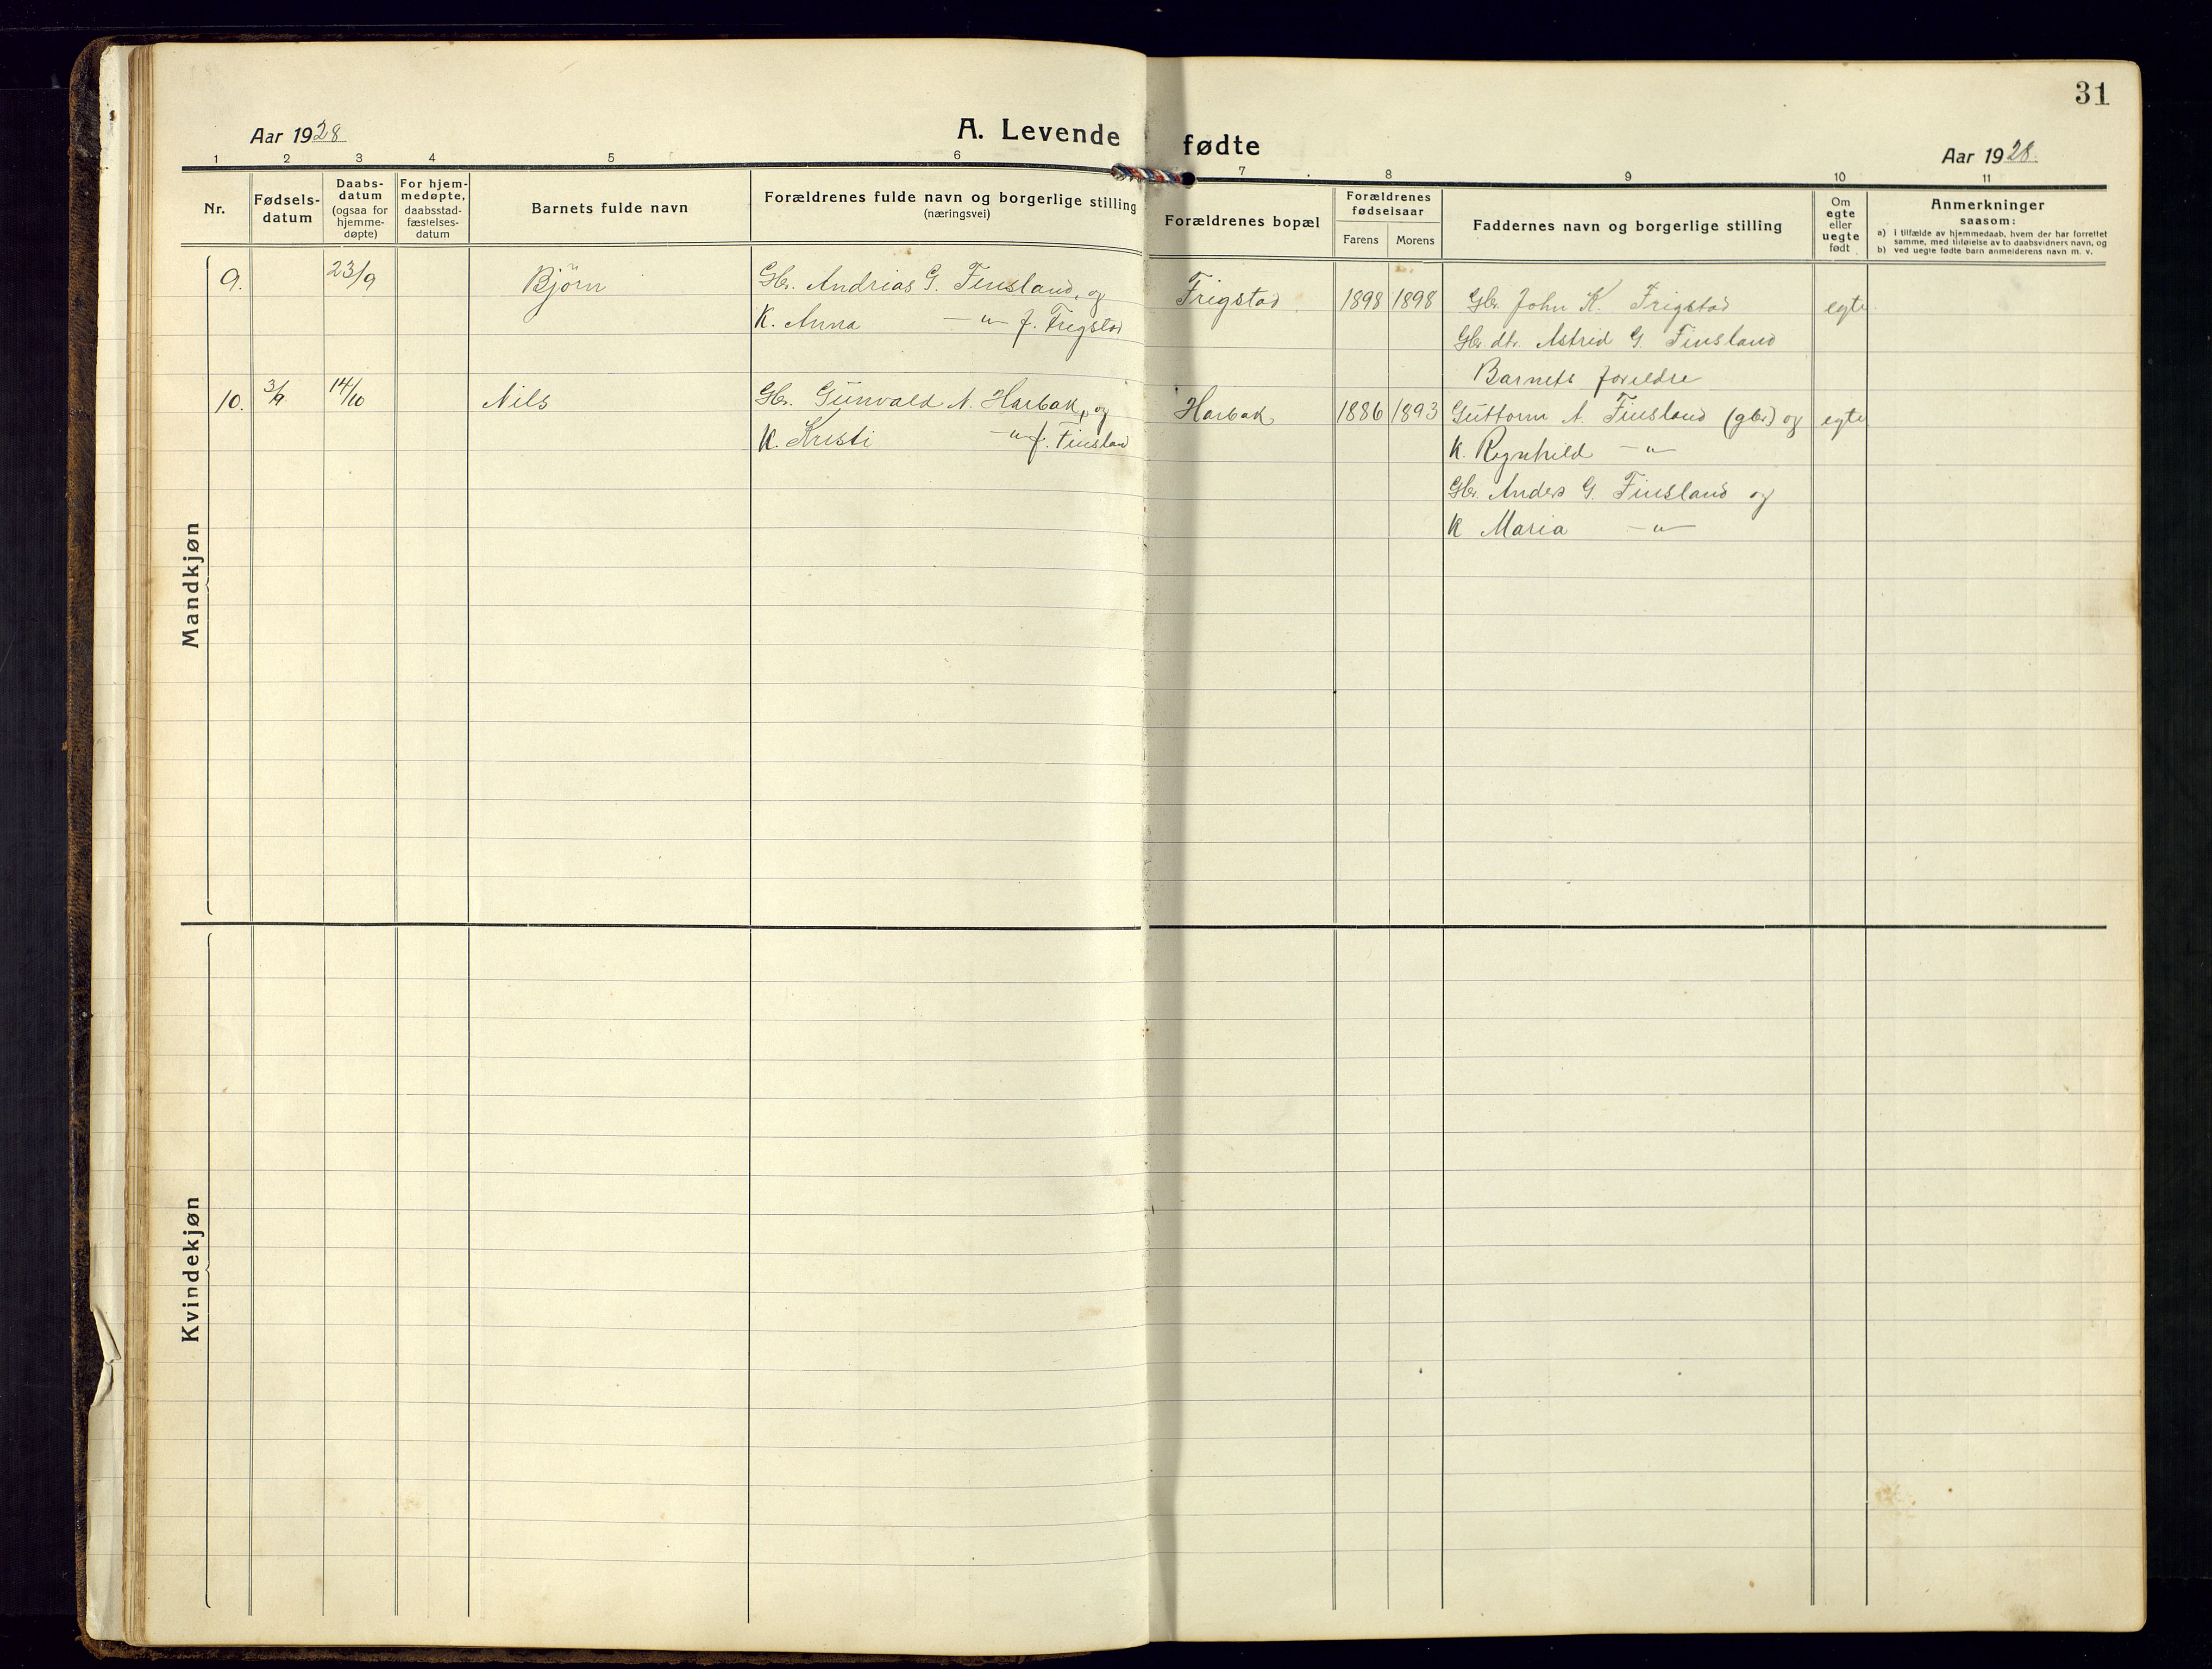 31
Aar 1928
A. Levende fødte
Aar 1928.
1 2 3 4 5 6 7 8 9 10 11
Nr.
Fødsels-
datum
Daabs-
datum
(ogsaa for
hjemme-
døpte)
For hjem-
medøpte,
daabsstad-
fæstelses-
datum
Barnets fulde navn
Forældrenes fulde navn og borgerlige stilling
(næringsvei)
Forældrenes bopæl
Forældrenes
fødselsaar
Farens Morens
Faddernes navn og borgerlige stilling
Om
egte
eller
uegte
født
Anmerkninger
saasom:
a) i tilfælde av hjemmedaab, hvem der har forrettet
samme, med tilføielse av to daabsvidners navn, og
b) ved uegte fødte barn anmelderens navn m. v.
Mandkjøn
9. 23/9 Björn Gbr. Andrias G. Finsland, og Frigstad 1898 1898 Gbr. John K. Frigstad egte
K. Anna —"— f. Frigstad Gbr. dtr. Astrid G. Finsland
Barnets foreldre
10. 3/9 14/10 Nils Gbr. Gunvald N. Harbak, og Harbak 1886 1893 Guttorm A. Finsland (gbr) og egte
K. Kristi —"— f. Finsland K. Ragnhild —"—
Gbr. Anders G. Finsland og
K Maria —"—
Kvindekjøn